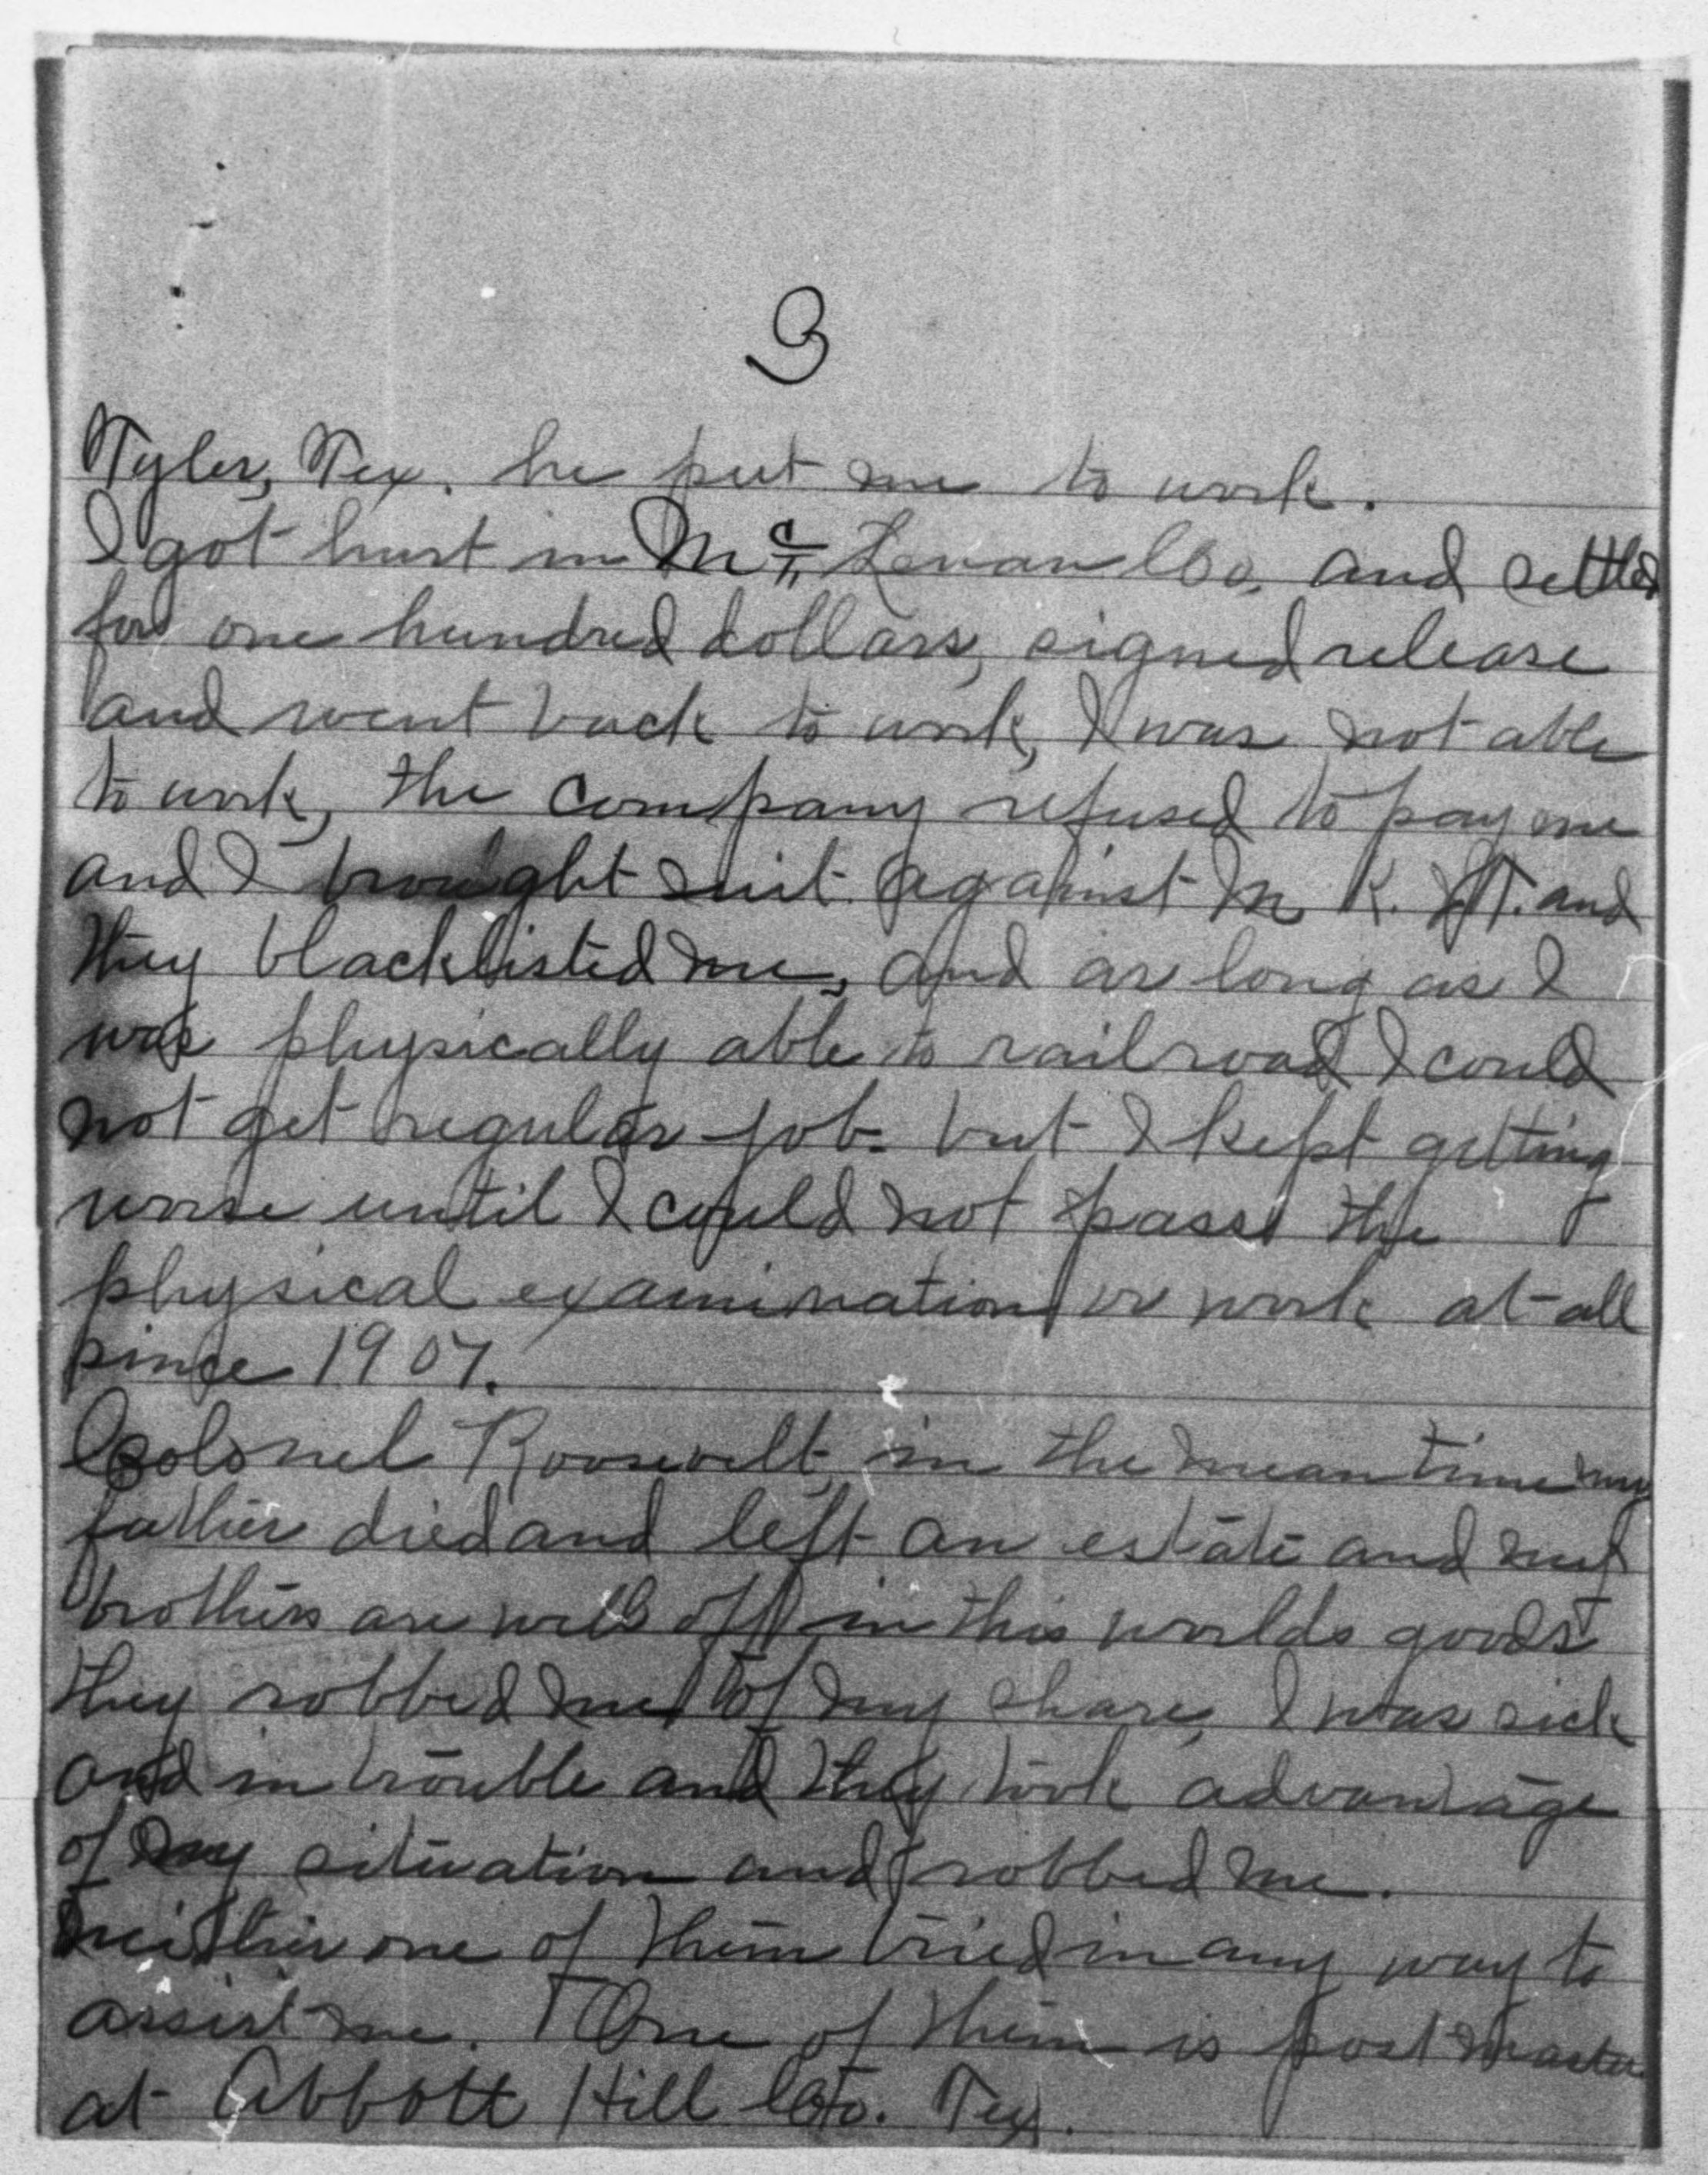 3
Tyler, Tex. he put me to work.
I got hurt in Mc Lenan Co. and settled
for one hundred dollars, signed release
and went back to work, I was not able
to work, the company refused to pay me
and I brought suit against M. K. & T. and
they blacklisted me, and as long as I
was physically able to railroad I could
not get regular job. but I kept getting
worse until I could not pass the
physical examination or work at all
since 1907.
Colonel Roosevelt, in the meantime my
father died and left an estate and my
brothers are well off in this worlds goods
they robbed me of my share, I was sick
and in trouble and they took advantage
of my situation and robbed me.
neither one of them tried in any way to
assist me. One of them is postmaster
at Abbott Hill Co. Tex.